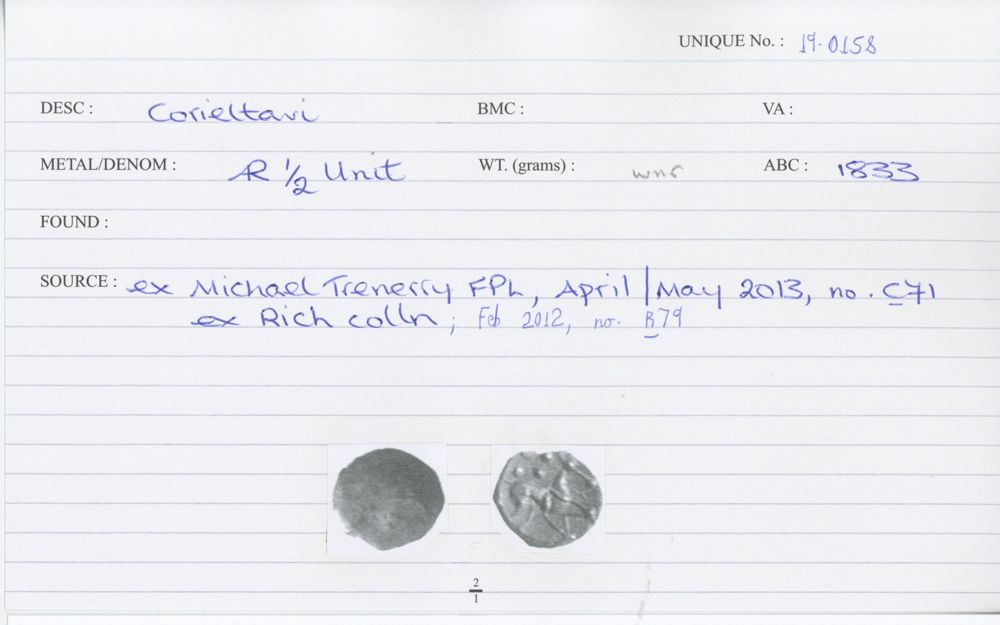 UNIQUE No. : 19.0158
DESC : Corieltavi BMC : VA :
METAL/DENOM : AR 1/2 Unit WT. (grams) : wnr ABC : 1833
FOUND :
SOURCE : ex Michael Trenerry FPL, April/May 2013, no. C71
ex Rich colln; Feb 2012, no. R79
2
1